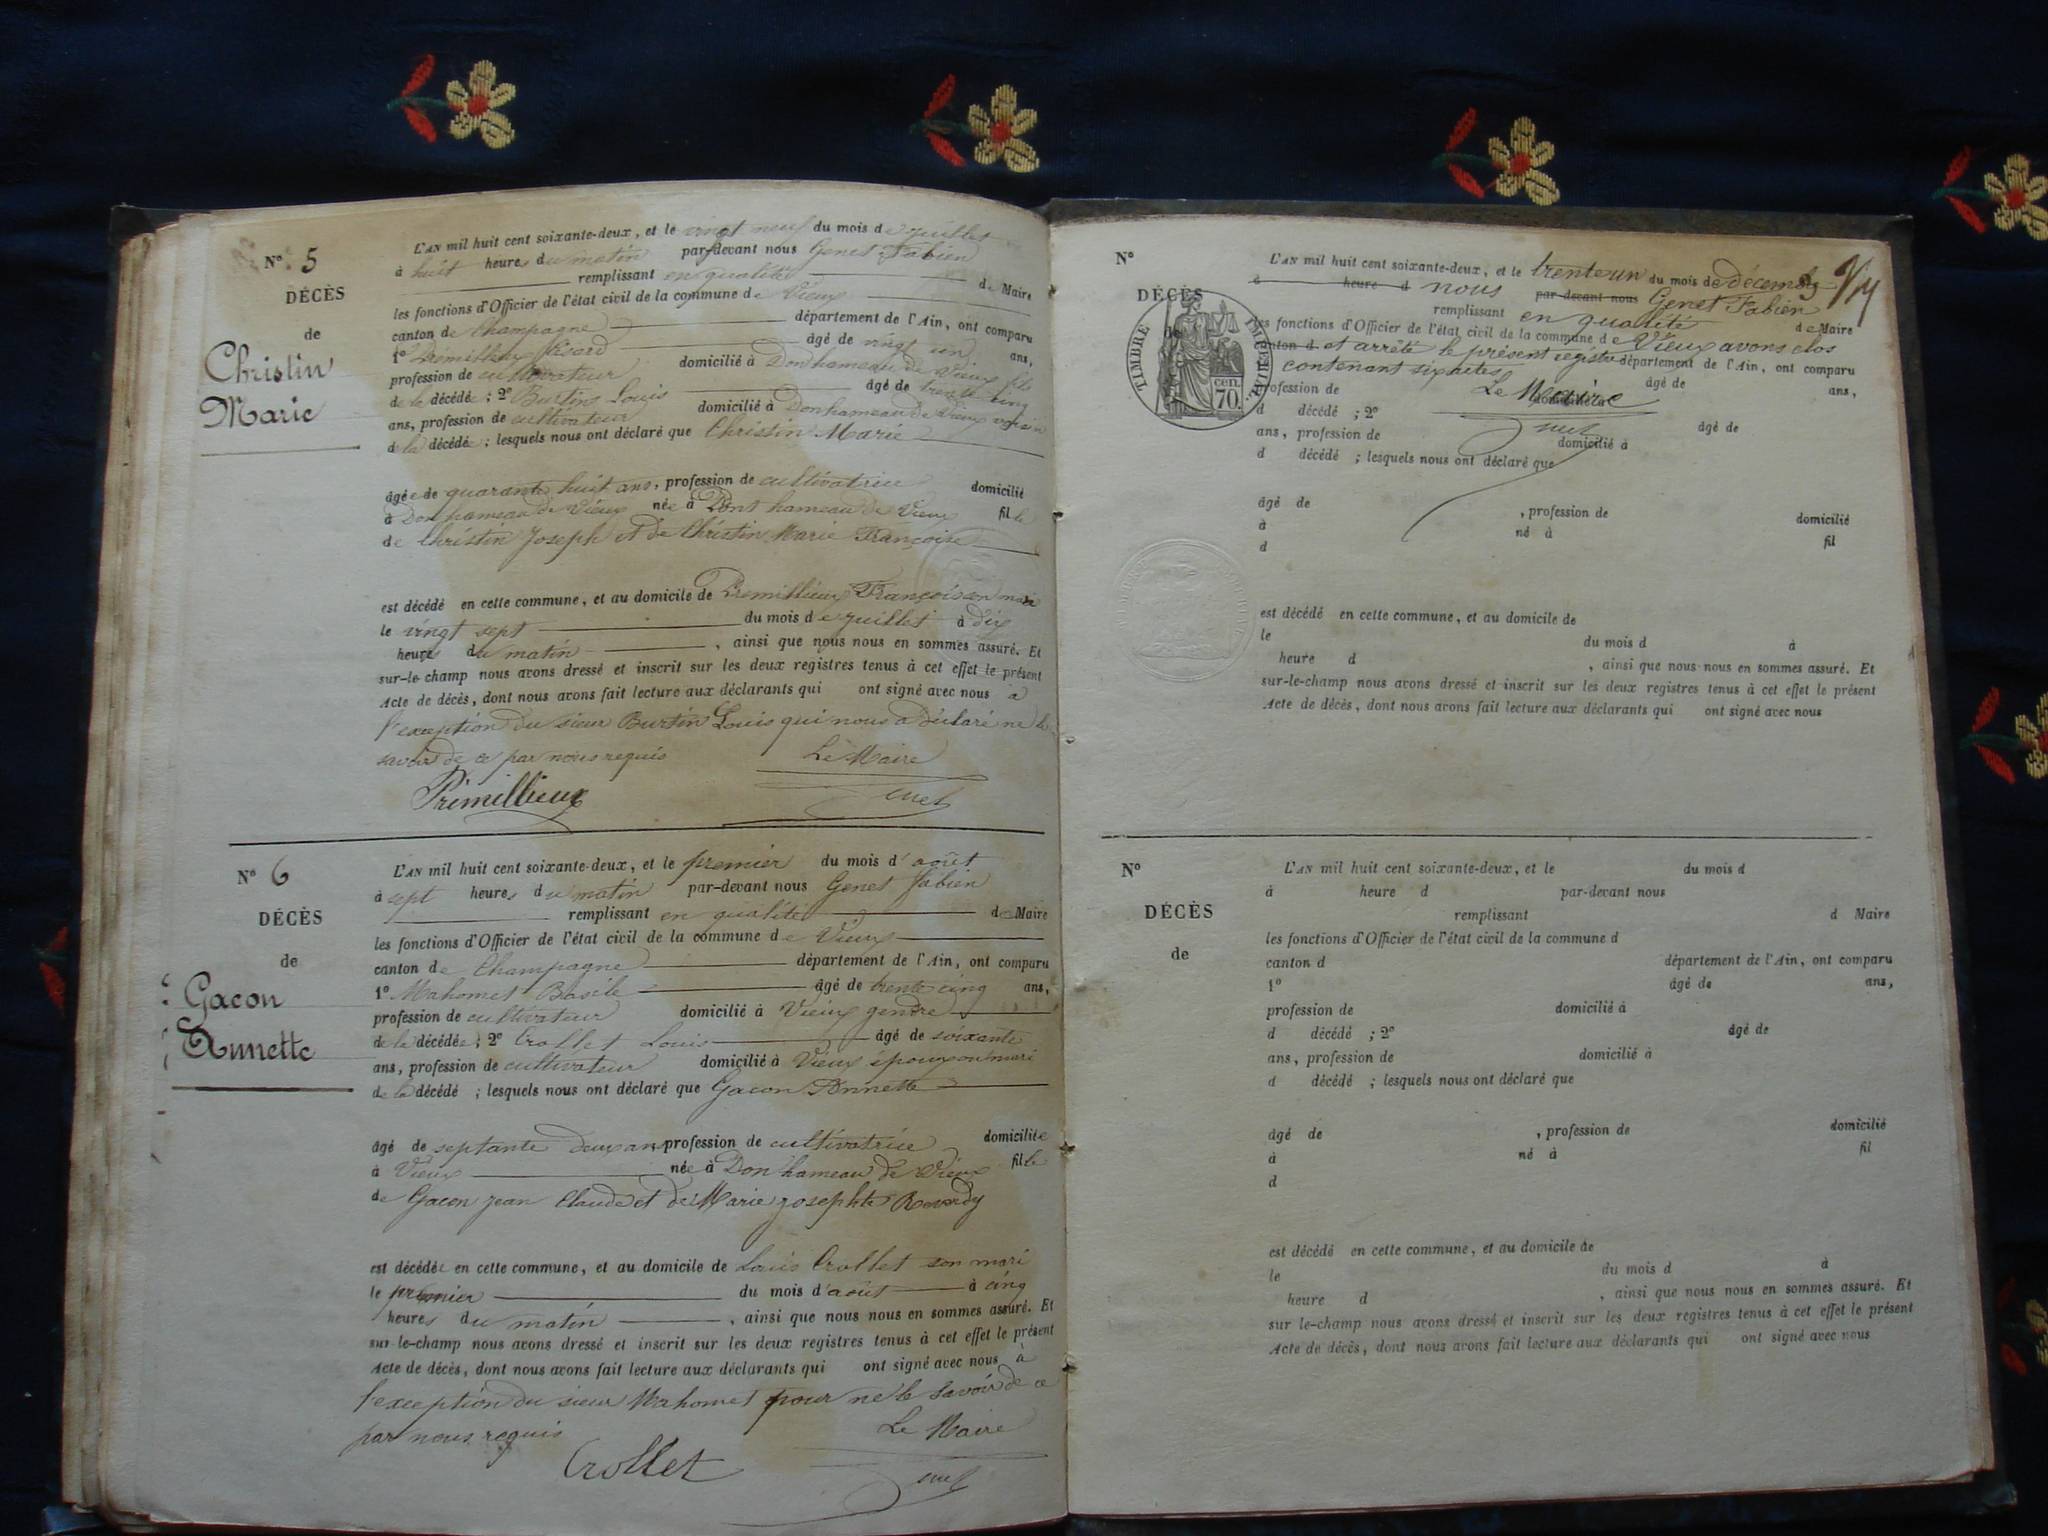 N° 5
DÉCÈS
de
Christin
Marie
L'AN mil huit cent soixante-deux, et le vingt neuf du mois de juillet
à huit heures du matin par-devant nous Genet Fabien
remplissant en qualité de Maire
les fonctions d'Officier de l'état civil de la commune de Vieux
canton de Champagne département de l'Ain, ont comparu
1° Premillieux âgé de vingt un ans,
profession de cultivateur domicilié à Don hameau de Vieux fils
de la décédée ; 2° Burtin Louis âgé de trente cinq
ans, profession de cultivateur domicilié à Don hameau de Vieux voisin
de la décédée ; lesquels nous ont déclaré que Christin Marie
âgée de quarante huit ans, profession de cultivatrice domicilié
à Don hameau de Vieux née à Dont hameau de Vieux fille
de Christin Joseph et de Christin Marie Françoise
est décédé en cette commune, et au domicile de Premillieux François son mari
le vingt sept du mois de juillet à dix
heures du matin , ainsi que nous nous en sommes assuré. Et
sur-le-champ nous avons dressé et inscrit sur les deux registres tenus à cet effet le présent
Acte de décès, dont nous avons fait lecture aux déclarants qui ont signé avec nous à
l'exception du sieur Burtin Louis qui nous a déclaré ne le
savoir de ce par nous requis Le Maire
Prémillieux Genet
N° 6
DÉCÈS
de
Gacon
Annette
L'AN mil huit cent soixante-deux, et le premier du mois d'août
à sept heures du matin par-devant nous Genet fabien
remplissant en qualité de Maire
les fonctions d'Officier de l'état civil de la commune de Vieux
canton de Champagne département de l'Ain, ont comparu
1° Mahomet Basile âgé de trente cinq ans,
profession de cultivateur domicilié à Vieux gendre
de la décédée ; 2° Crollet Louis âgé de soixante
ans, profession de cultivateur domicilié à Vieux époux ou mari
de la décédé ; lesquels nous ont déclaré que Gacon Annette
âgé de septante deux ans profession de cultivatrice domiciliée
à Vieux née à Don hameau de Vieux fille
de Gacon jean Claude et de Marie josephte Reverdy
est décédée en cette commune, et au domicile de Louis Crollet son mari
le premier du mois d'août à cinq
heures du matin , ainsi que nous nous en sommes assuré. Et
sur-le-champ nous avons dressé et inscrit sur les deux registres tenus à cet effet le présent
Acte de décès, dont nous avons fait lecture aux déclarants qui ont signé avec nous à
l'exception du sieur Mahomet pour ne le savoir de ce
par nous requis Le Maire
Crollet Genet
N°
DÉCÈS
de
TIMBRE IMPÉRIAL
cen. 70.
L'AN mil huit cent soixante-deux, et le trente un du mois de décembre
à heure d nous par-devant nous Genet Fabien
remplissant en qualité de Maire
les fonctions d'Officier de l'état civil de la commune de Vieux avons clos
canton d et arrêté le présent registre département de l'Ain, ont comparu
contenant six actes
profession de Le Maire domicilié à âgé de ans,
d décédé ; 2° Genet âgé de
ans, profession de domicilié à
d décédé ; lesquels nous ont déclaré que
âgé de , profession de domicilié
à né à fil
d
est décédé en cette commune, et au domicile de
le du mois d à
heure d , ainsi que nous nous en sommes assuré. Et
sur-le-champ nous avons dressé et inscrit sur les deux registres tenus à cet effet le présent
Acte de décès, dont nous avons fait lecture aux déclarants qui ont signé avec nous
N°
DÉCÈS
de
L'AN mil huit cent soixante-deux, et le du mois d
à heure d par-devant nous
remplissant d Maire
les fonctions d'Officier de l'état civil de la commune d
canton d département de l'Ain, ont comparu
1° âgé de ans,
profession de domicilié à
d décédé ; 2° âgé de
ans, profession de domicilié à
d décédé ; lesquels nous ont déclaré que
âgé de , profession de domicilié
à né à fil
d
est décédé en cette commune, et au domicile de
le du mois d à
heure d , ainsi que nous nous en sommes assuré. Et
sur-le-champ nous avons dressé et inscrit sur les deux registres tenus à cet effet le présent
Acte de décès, dont nous avons fait lecture aux déclarants qui ont signé avec nous